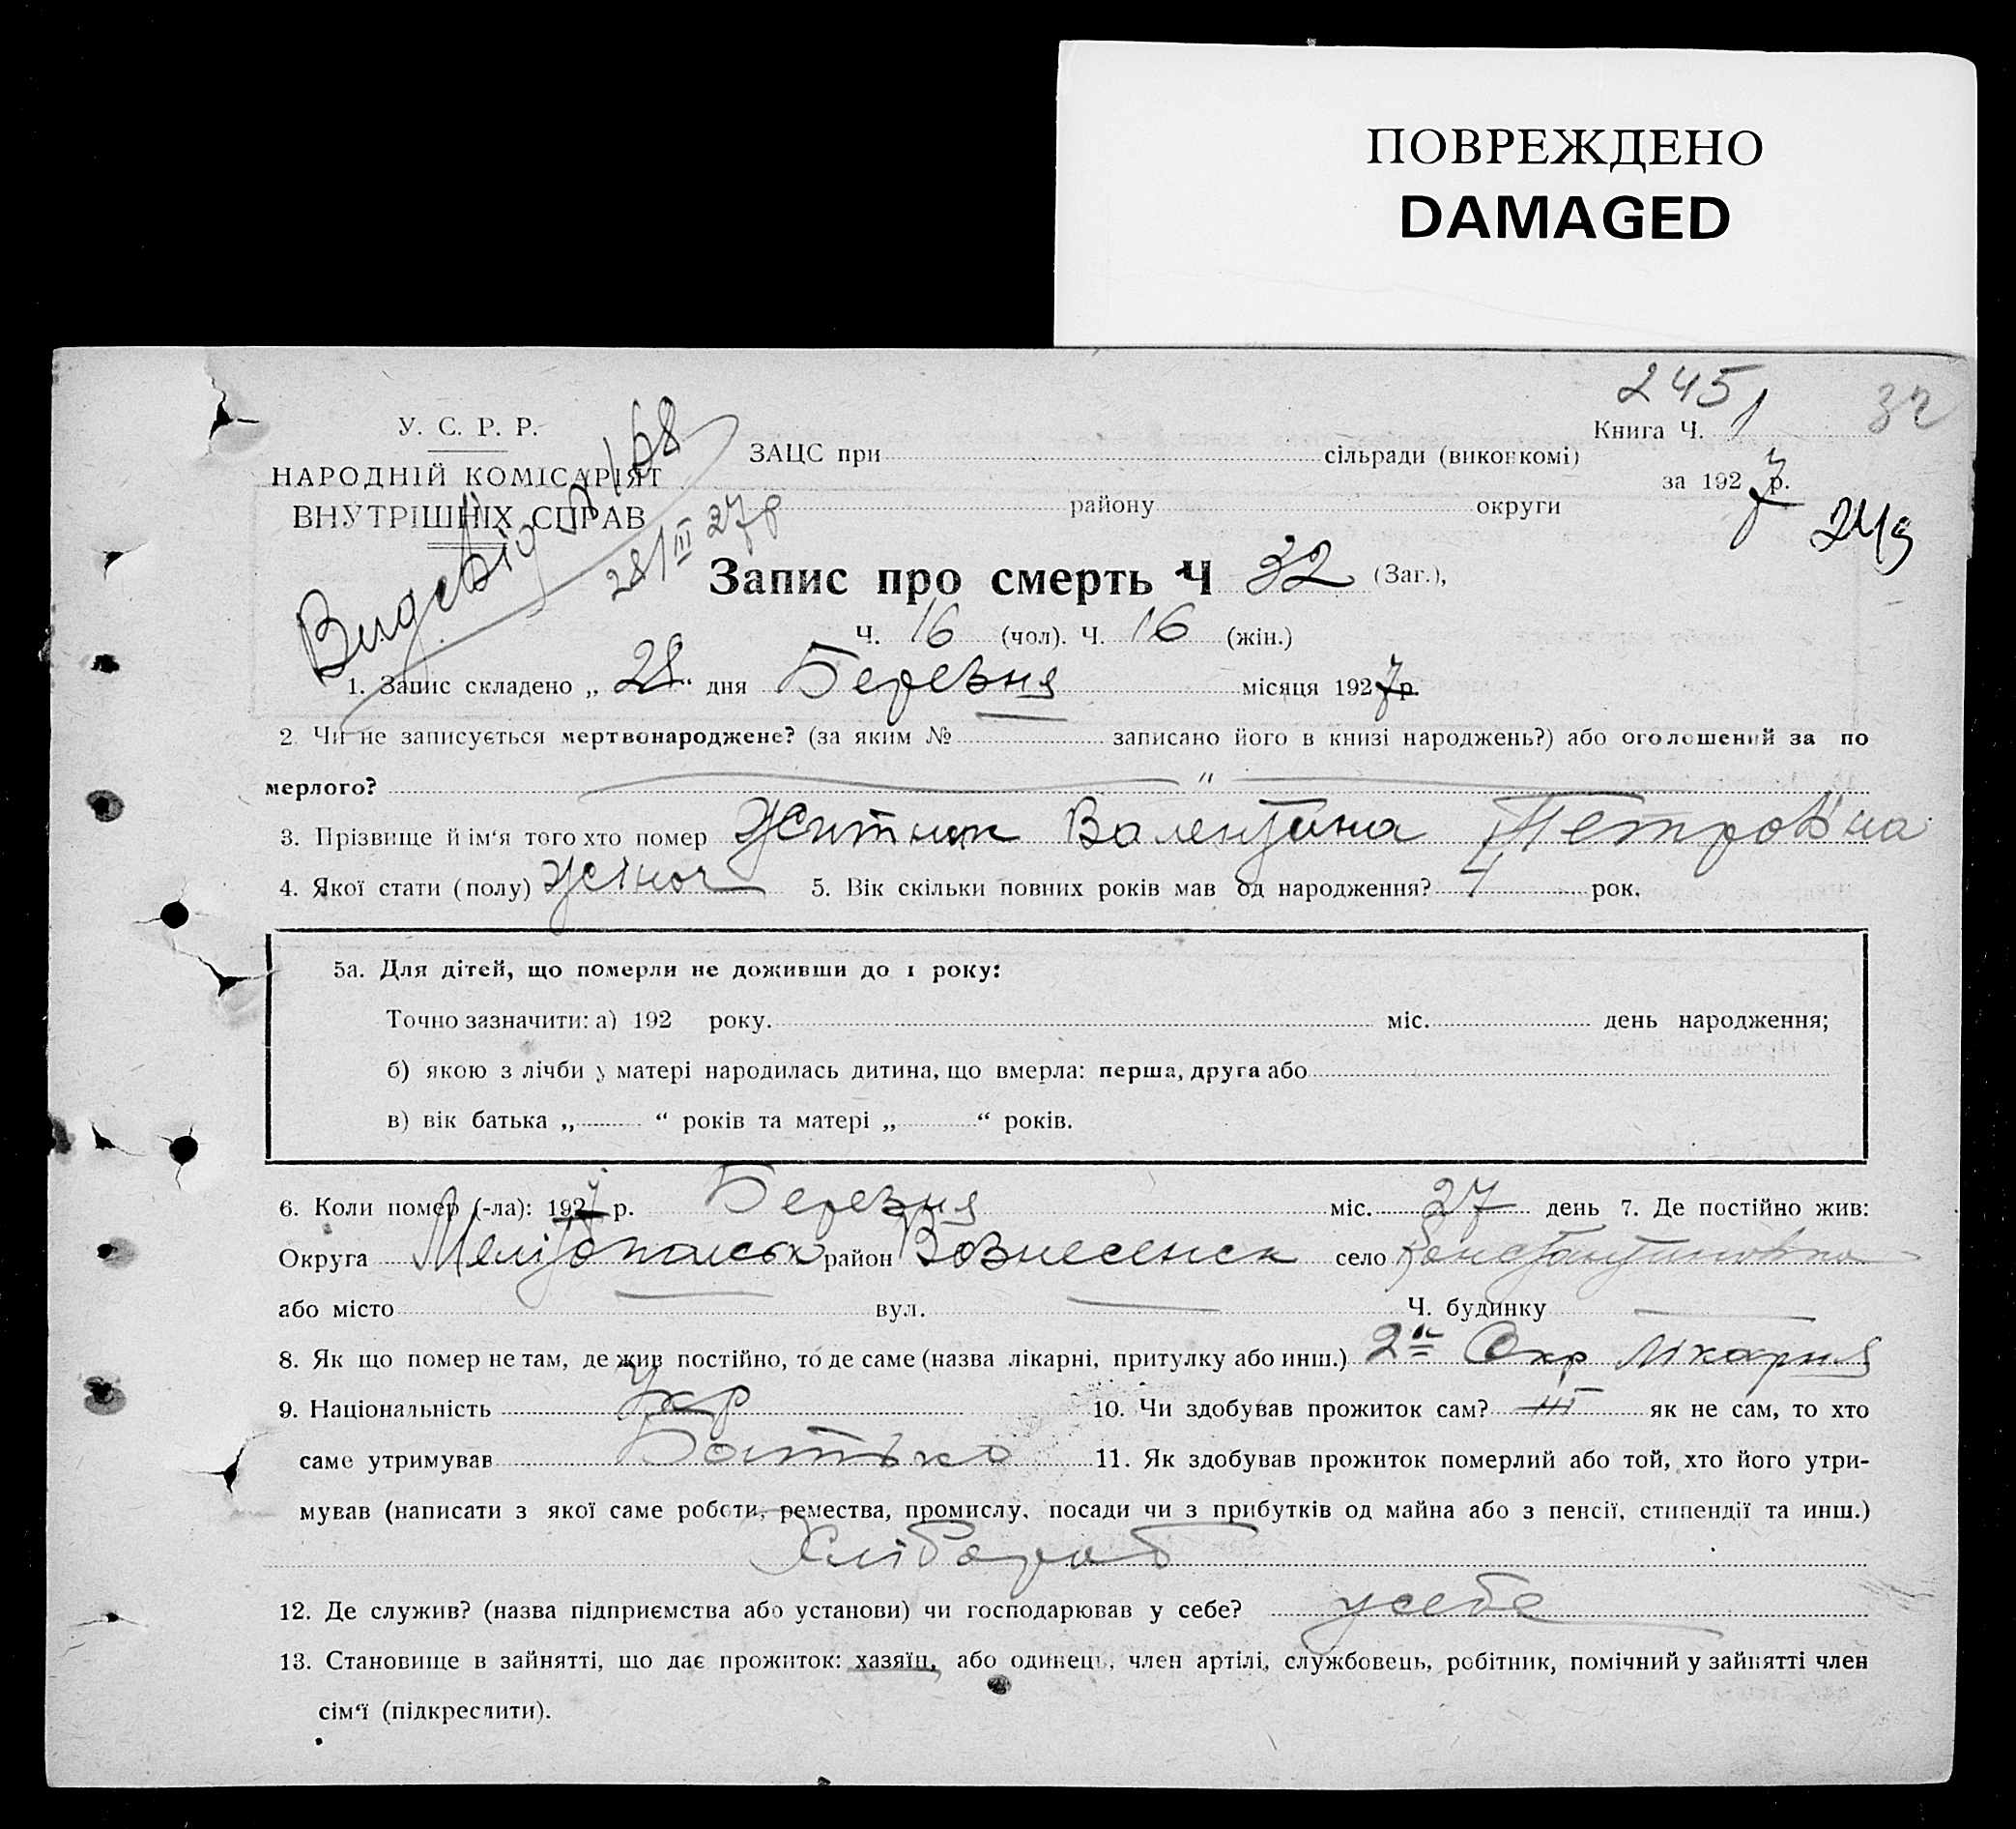 ПОВРЕЖДЕНО
DAMAGED
245
32
У. С. Р. Р.
НАРОДНІЙ КОМІСАРІЯТ
ВНУТРІШНІХ СПРАВ
168
28/III 27р
ЗАЦС при сільради (виконкомі)
Книга Ч. 1
району округи
за 1927 р.
Запис про смерть Ч 32 (Заг.),
Ч. 16 (чол). Ч. 16 (жін.)
1. Запис складено „ 28 “ дня Березня місяця 1927 р.
2. Чи не записується мертвонароджене? (за яким № записано його в книзі народжень?) або оголошений за по
мерлого? "
3. Прізвище й ім'я того хто помер Житник Валентина Петровна
4. Якої стати (полу) жіноч 5. Вік скільки повних років мав од народження? 4 рок.
5а. Для дітей, що померли не доживши до 1 року:
Точно зазначити: а) 192 року. міс. день народження;
б) якою з лічби у матері народилась дитина, що вмерла: перша, друга або
в) вік батька „ “ років та матері „ “ років.
6. Коли помер (-ла): 1927 р. Березня міс. 27 день 7. Де постійно жив:
Округа Мелітопольськ район Вознесенск село Константиновка
або місто вул. Ч. будинку
8. Як що помер не там, де жив постійно, то де саме (назва лікарні, притулку або инш.) 2а Окр лікарня
9. Національність укр 10. Чи здобував прожиток сам? ні як не сам, то хто
саме утримував Батько 11. Як здобував прожиток померлий або той, хто його утри-
мував (написати з якої саме роботи, ремества, промислу, посади чи з прибутків од майна або з пенсії, стипендії та инш.)
Хлібороб
12. Де служив? (назва підприємства або установи) чи господарював у себе? усебе
13. Становище в зайнятті, що дає прожиток: хазяїн, або одинець, член артілі, службовець, робітник, помічний у зайнятті член
сім'ї (підкреслити).